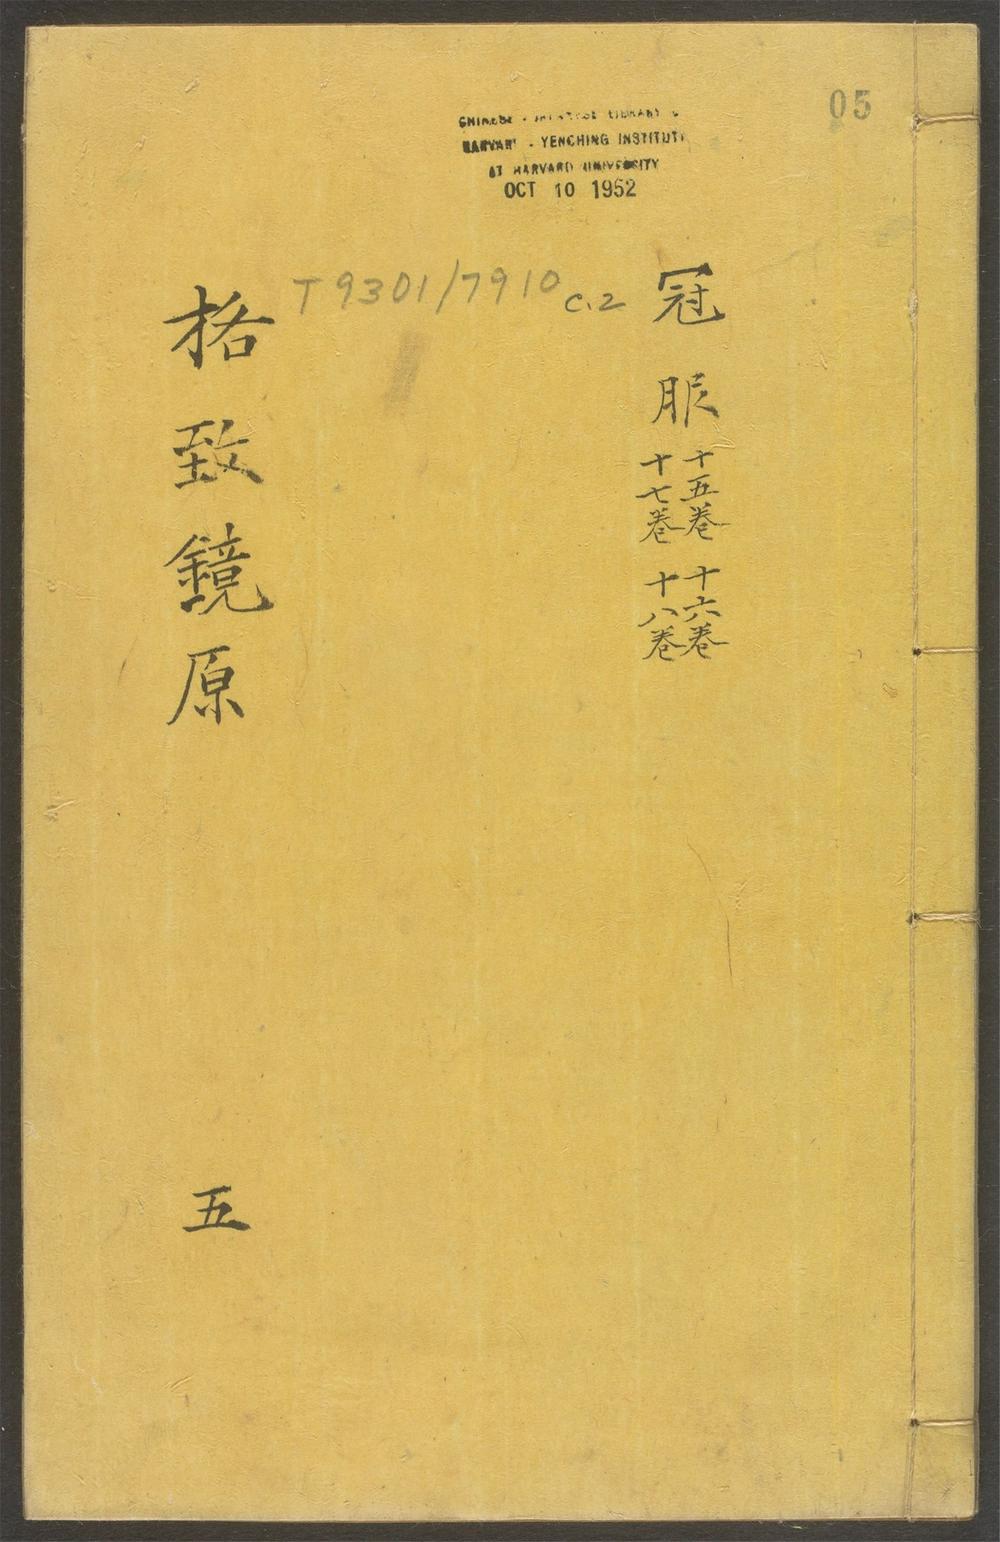 05
CHINESE - JAPANESE LIBRARY
HARVARD - YENCHING INSTITUTE
AT HARVARD UNIVERSITY
OCT 10 1952
T 9301/7910 c.2
冠服
十五卷 十六卷
十七卷 十八卷
格致鏡原
五